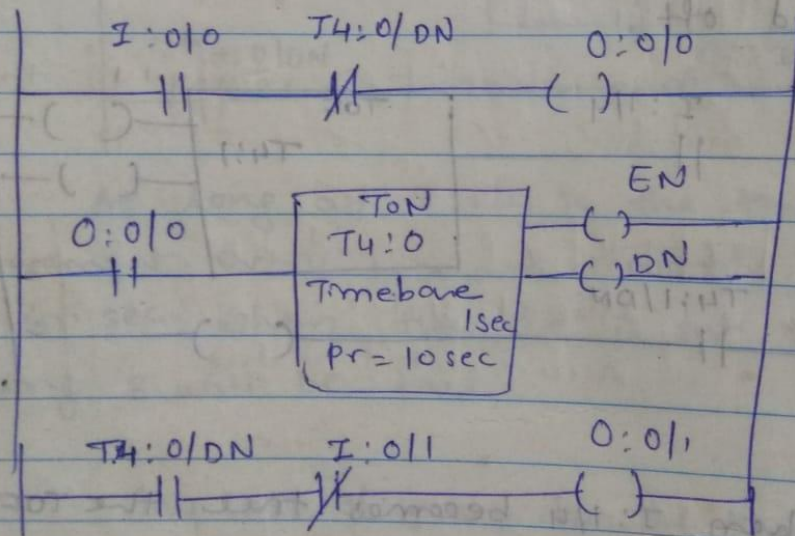 I:0/0 T4:0/DN O:0/0
EN
TON
O:0/0 T4:0
DN
Timebase
1sec
Pr = 10 sec
T4:0/DN I:0/1 O:0/1